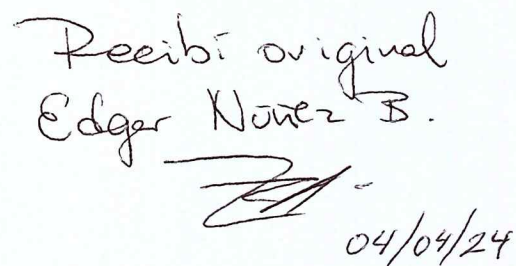 Recibí original
Edgar Núñez B.
04/04/24